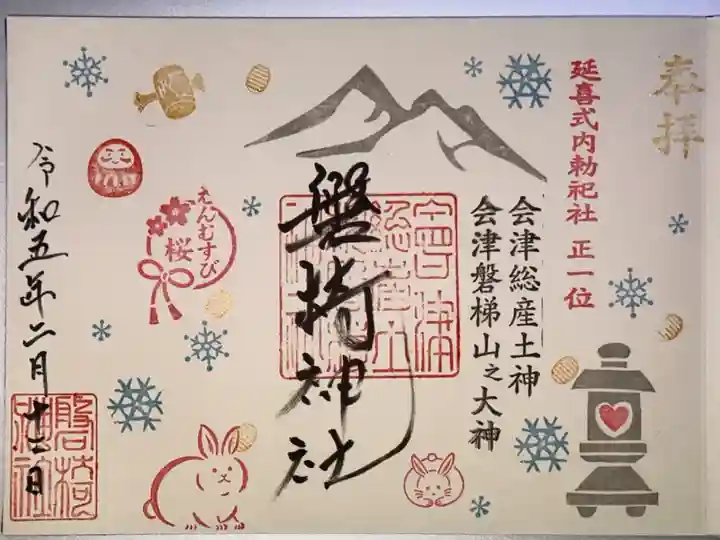 奉拝
延喜式内勅祀社 正一位
会津総産土神
会津磐梯山之大神
磐椅神社
えんむすび
桜
令和五年二月十二日
磐椅
神社